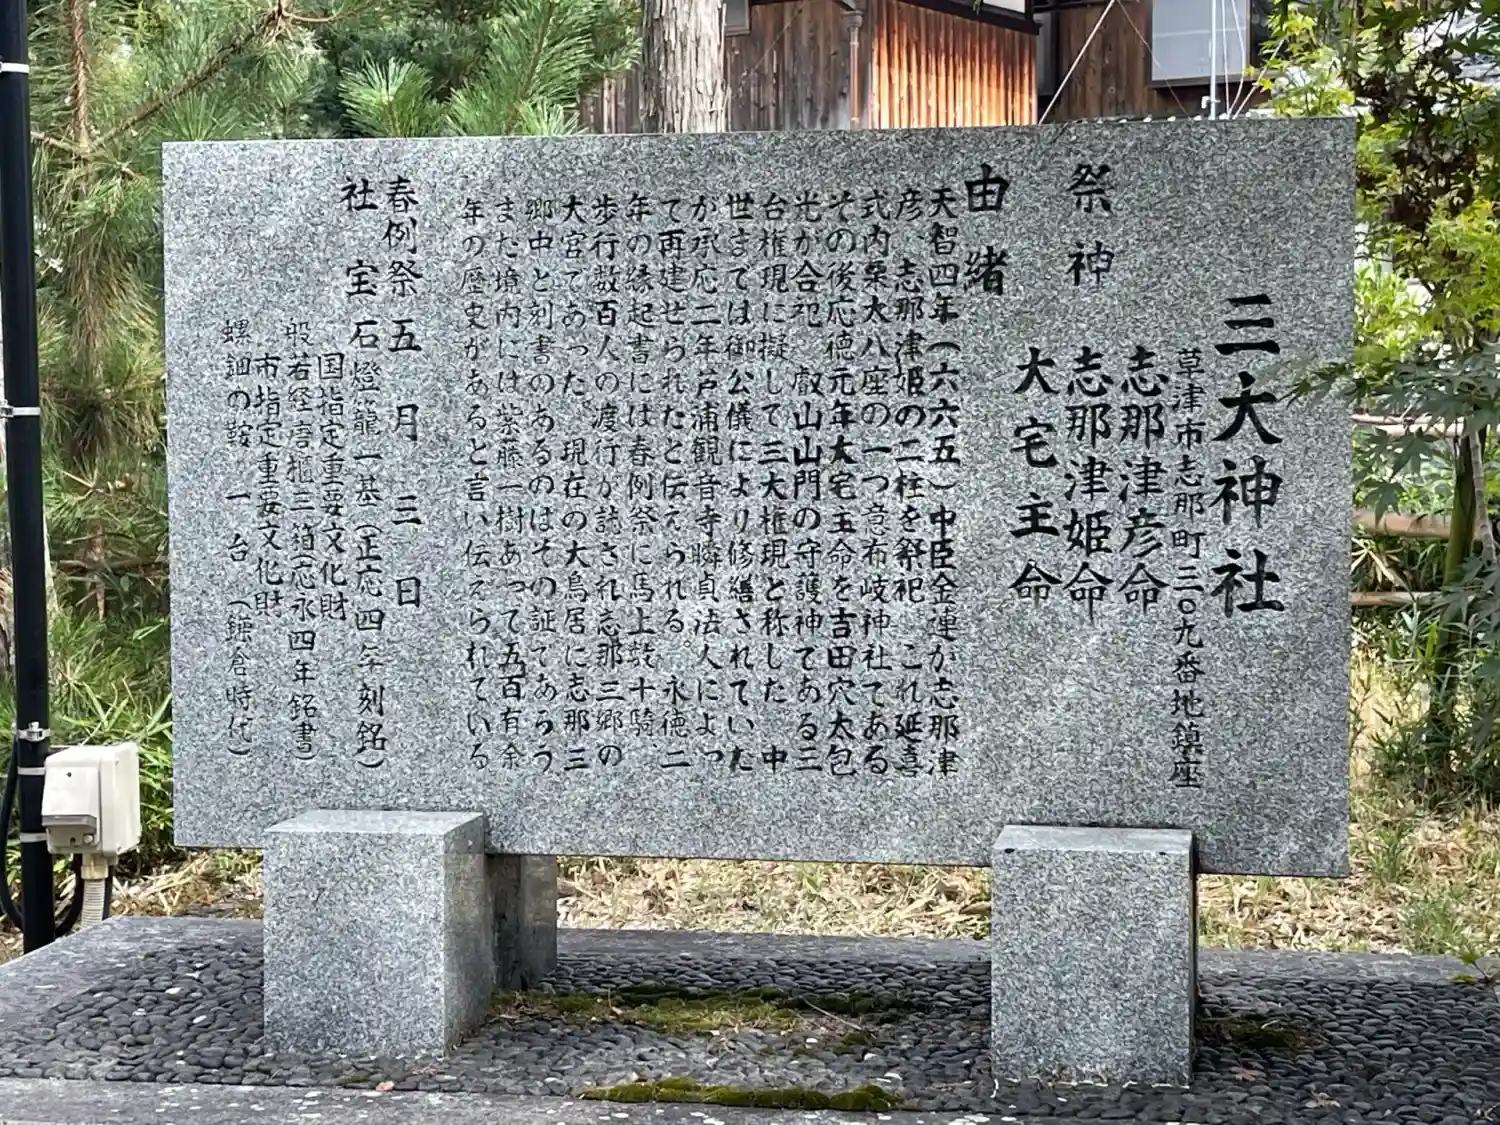 三大神社
草津市志那町三〇九番地鎮座
祭神 志那津彦命
志那津姫命
大宅主命
由緒
天智四年(六六五)中臣金連が志那津
彦、志那津姫の二柱を祭祀、これ延喜
式内栗太八座の一つ意布岐神社である
その後応徳元年大宅主命を吉田穴太包
光が合祀、叡山山門の守護神である三
台権現に擬して三大権現と称した 中
世までは御公儀により修繕されていた
が承応二年芦浦観音寺瞬貞法人によっ
て再建せられたと伝えられる。永徳二
年の縁起書には春例祭に馬上数十騎、
歩行数百人の渡行が誌され志那三郷の
大宮であった。現在の大鳥居に志那三
郷中と刻書のあるのはその証であろう
また境内には紫藤一樹あって五百有余
年の歴史があると言い伝えられている
春例祭 五月三日
社宝 石燈籠一基(正応四年刻銘)
国指定重要文化財
般若経唐櫃三箱応永四年銘書)
市指定重要文化財
螺鈿の鞍 一台(鎌倉時代)